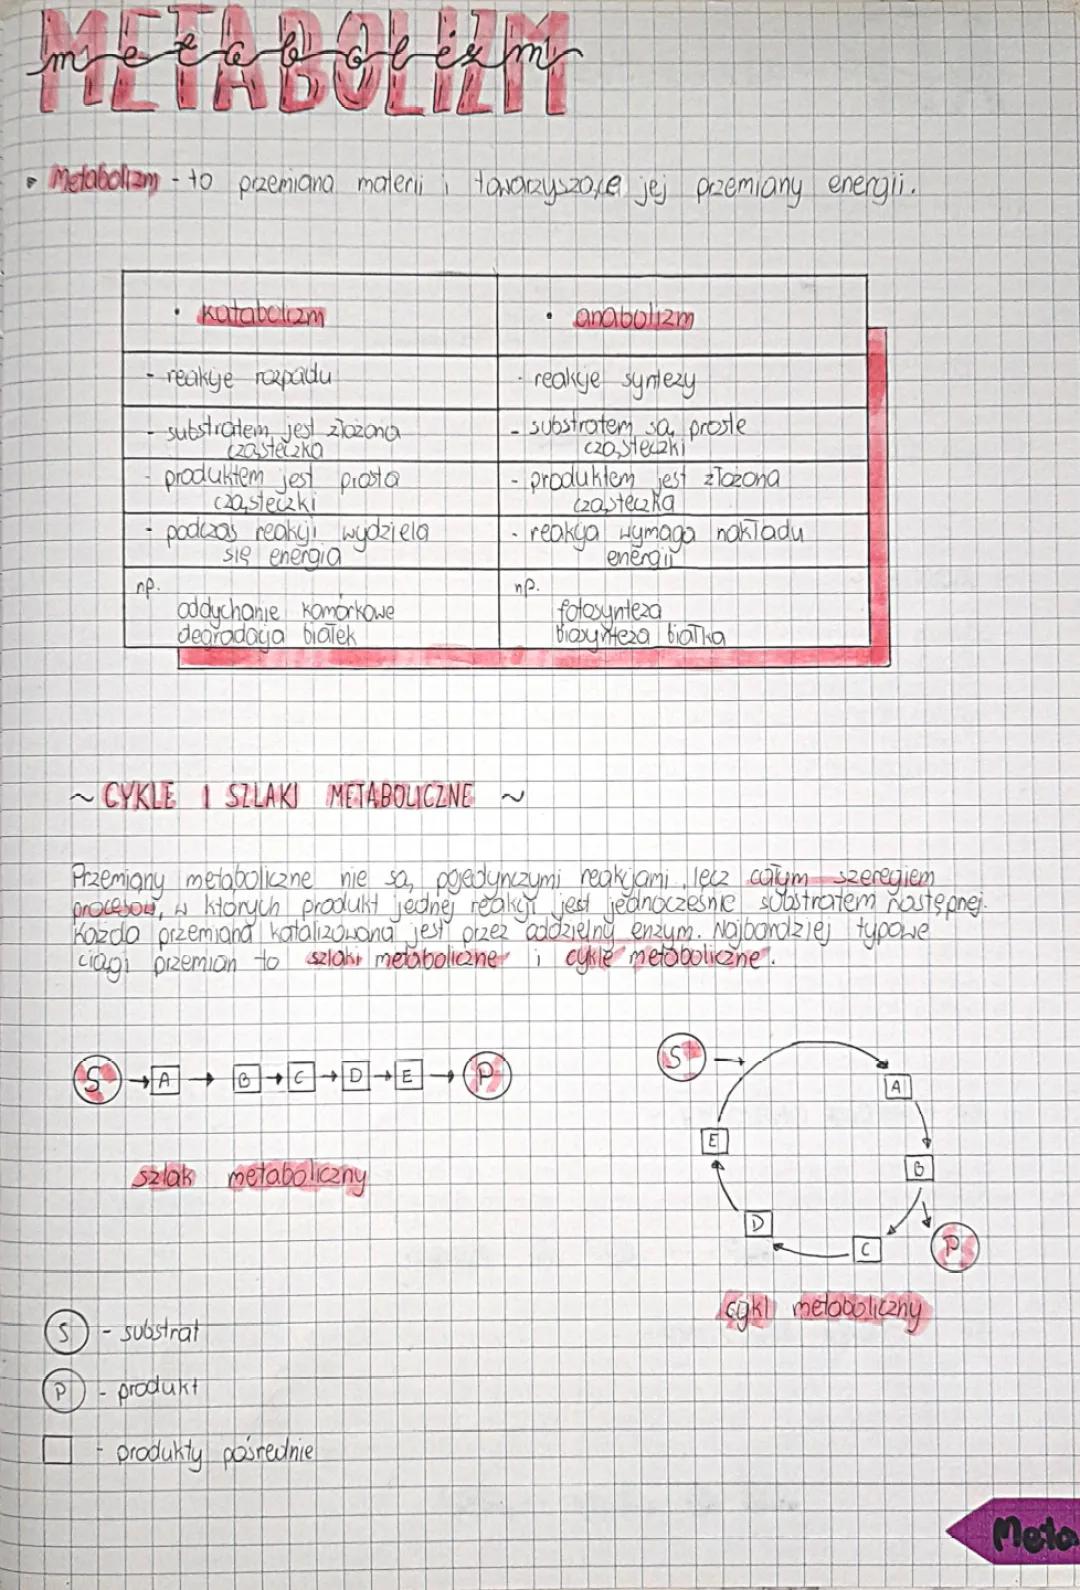 METABOLIZM
metabolizm
Metabolizm - to przemiana materii i towarzysząca jej przemiany energii.
• katabolizm
• anabolizm
- reakcje rozpadu
- reakcje syntezy
- substratem jest złożona
cząsteczka
- substratem są proste
cząsteczki
- produktem jest prosta
cząsteczki
- produktem jest złożona
cząsteczka
- podczas reakcji wydziela
się energia
- reakcja wymaga nakładu
energii
np.
oddychanie komórkowe
degradacja białek
np.
fotosynteza
biosynteza białka
~ CYKLE I SZLAKI METABOLICZNE ~
Przemiany metaboliczne nie są pojedynczymi reakcjami, lecz całym szeregiem
procesów, w których produkt jednej reakcji jest jednocześnie substratem następnej.
Każda przemiana katalizowana jest przez oddzielny enzym. Najbardziej typowe
ciągi przemian to szlaki metaboliczne i cykle metaboliczne.
S → A → B → C → D → E → P
szlak metaboliczny
S
A
E
B
D
C
P
cykl metaboliczny
S - substrat
P - produkt
- produkty pośrednie
Meta